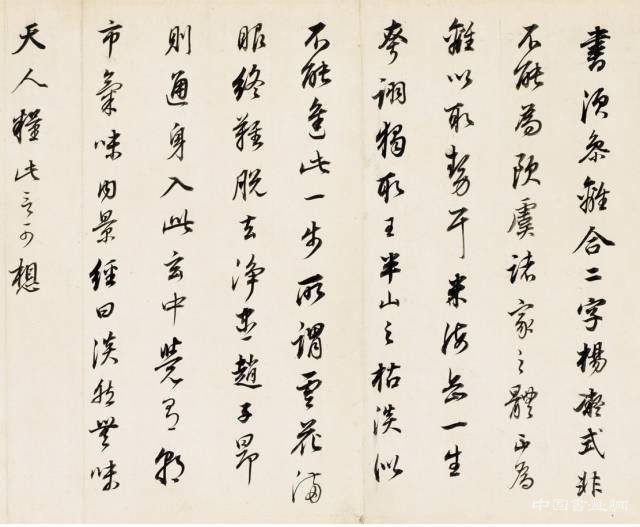 書須參離合二字楊凝式非
不能為歐虞諸家之體正為
離以取勢耳米海岳一生
夸詡獨取王半山之枯淡似
不能進此一步所謂雲花滿
眼終難脫去淨盡趙子昂
則通身入此玄中覺有朝
市氣味內景經曰淡然無味
天人糧此言可想